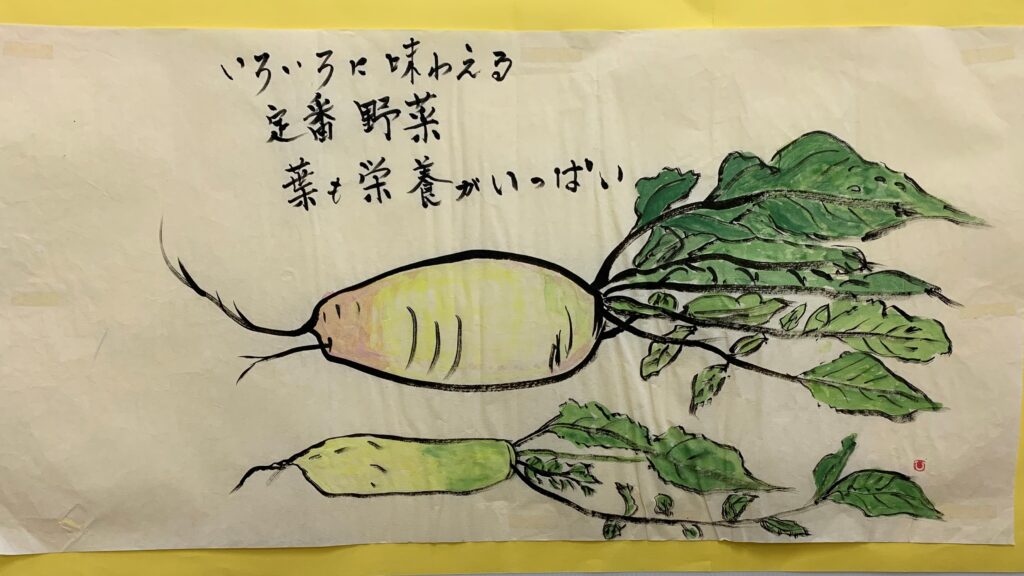 いろいろに味わえる
定番野菜
葉も栄養がいっぱい